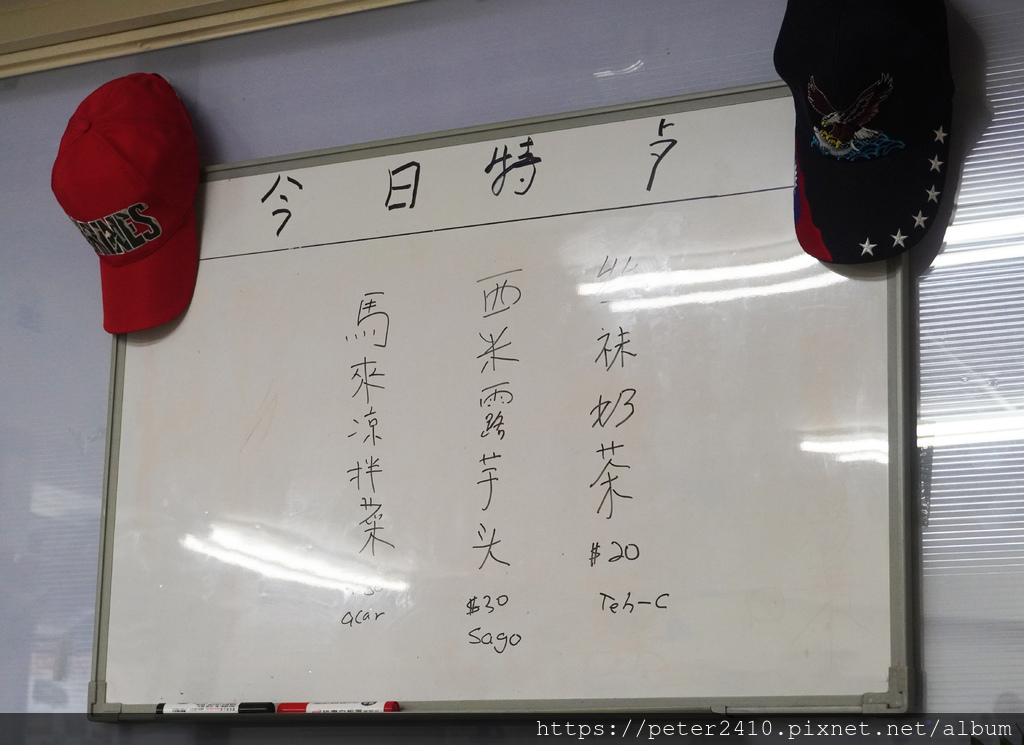 今日特歺
袜奶茶
$20
Teh-C
西米露芋头
$30
Sago
馬來凉拌菜
acar
https://peter2410.pixnet.net/album